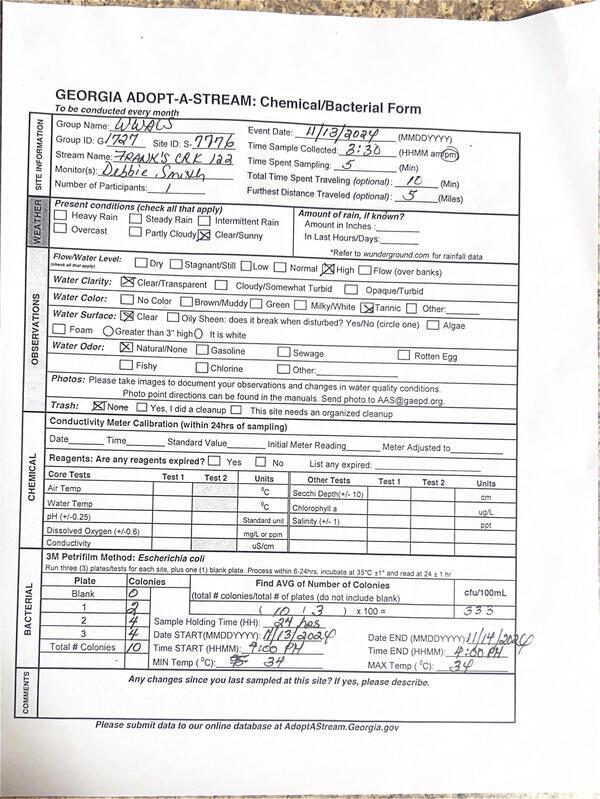 GEORGIA ADOPT-A-STREAM: Chemical/Bacterial Form
To be conducted every month
SITE INFORMATION
Group Name: WWALS
Event Date: 11/13/2024 (MMDDYYYY)
Group ID: G1727 Site ID: S-7776
Time Sample Collected: 3:30 (HHMM am/pm)
Stream Name: FRANK'S CRK 122
Time Spent Sampling: 5 (Min)
Monitor(s): Debbie Smith
Total Time Spent Traveling (optional): 10 (Min)
Number of Participants: 1
Furthest Distance Traveled (optional): 5 (Miles)
WEATHER
Present conditions (check all that apply)
Heavy Rain Steady Rain Intermittent Rain
Overcast Partly Cloudy Clear/Sunny
Amount of rain, if known?
Amount in Inches:
In Last Hours/Days:
*Refer to wunderground.com for rainfall data
OBSERVATIONS
Flow/Water Level: Dry Stagnant/Still Low Normal High Flow (over banks)
(check all that apply)
Water Clarity: Clear/Transparent Cloudy/Somewhat Turbid Opaque/Turbid
Water Color: No Color Brown/Muddy Green Milky/White Tannic Other:
Water Surface: Clear Oily Sheen: does it break when disturbed? Yes/No (circle one) Algae
Foam Greater than 3" high It is white
Water Odor: Natural/None Gasoline Sewage Rotten Egg
Fishy Chlorine Other:
Photos: Please take images to document your observations and changes in water quality conditions.
Photo point directions can be found in the manuals. Send photo to AAS@gaepd.org.
Trash: None Yes, I did a cleanup This site needs an organized cleanup
CHEMICAL
Conductivity Meter Calibration (within 24hrs of sampling)
Date Time Standard Value Initial Meter Reading Meter Adjusted to
Reagents: Are any reagents expired? Yes No List any expired:
Core Tests Test 1 Test 2 Units Other Tests Test 1 Test 2 Units
Air Temp °C Secchi Depth(+/- 10) cm
Water Temp °C Chlorophyll a ug/L
pH (+/-0.25) Standard unit Salinity (+/- 1) ppt
Dissolved Oxygen (+/-0.6) mg/L or ppm
Conductivity uS/cm
BACTERIAL
3M Petrifilm Method: Escherichia coli
Run three (3) plates/tests for each site, plus one (1) blank plate. Process within 6-24hrs, incubate at 35°C ±1° and read at 24 ± 1 hr
Plate Colonies Find AVG of Number of Colonies cfu/100mL
Blank 0 (total # colonies/total # of plates (do not include blank)
1 2 ( 10 / 3 ) x 100 = 333
2 4 Sample Holding Time (HH): 24 hrs
3 4 Date START(MMDDYYYY) 11/13/2024 Date END (MMDDYYYY) 11/14/2024
Total # Colonies 10 Time START (HHMM): 4:00 PM Time END (HHMM): 4:00 PM
MIN Temp (°C): 34 MAX Temp (°C): 34
COMMENTS
Any changes since you last sampled at this site? If yes, please describe.
Please submit data to our online database at AdoptAStream.Georgia.gov